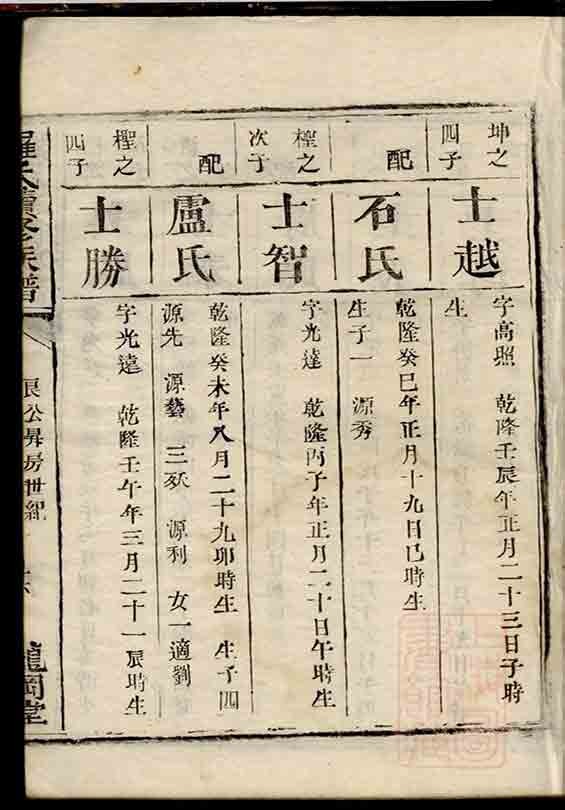 坤之
四子
士越
字高照 乾隆壬辰年正月二十三日子時
生
配
石氏
乾隆癸巳年正月十九日巳時生
生子一 源秀
樘之
次子
士智
字光達 乾隆丙子年正月二十日午時生
配
盧氏
乾隆癸未年八月二十九卯時生 生子四
源先 源藝 三殀 源利 女一適劉
樘之
四子
士勝
字光遠 乾隆壬午年三月二十一辰時生
羅氏續修族譜
公昇房世紀
龍岡堂